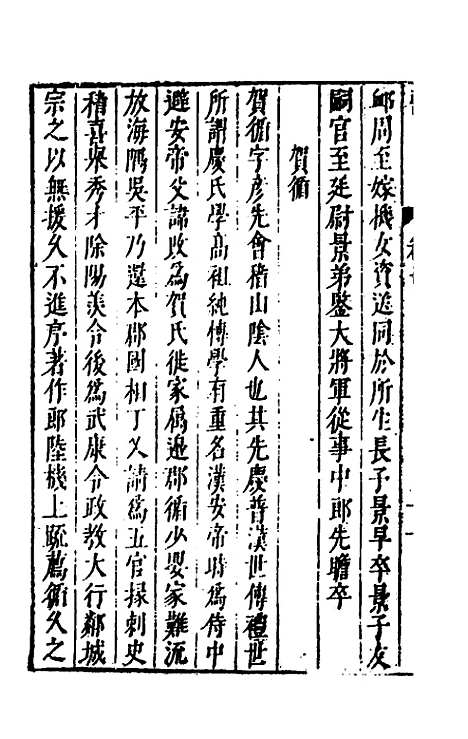 郷周至嫁機女資送同於所生長子景早卒景子友
嗣官至廷尉景弟鑒大將軍從事中郎先瞻卒
賀循
賀循字彥先會稽山陰人也其先慶普漢世傳禮世
所謂慶氏學高祖純博學有重名漢安帝時爲侍中
避安帝父諱改爲賀氏徙家屬邊郡循少嬰家難流
放海隅吳平乃還本郡國相丁乂請爲五官掾刺史
稽喜舉秀才除陽羨令後爲武康令政教大行鄰城
宗之以無援久不進序著作郎陸機上疏薦循久之